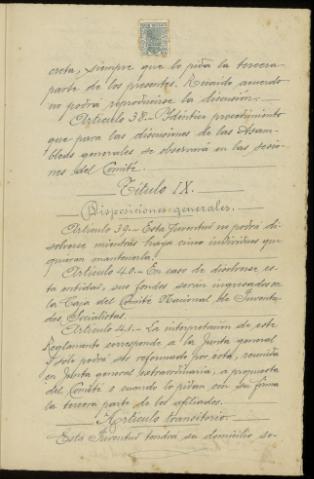 creta, siempre que lo pida la tercera
parte de los presentes. Recaido acuerdo
no podrá reproducirse la discusión.
Artículo 38.- Idéntico procedimiento
que para las discusiones de las Asam-
bleas generales se observará en las sesio-
nes del Comité.
Título IX.
Disposiciones generales.
Artículo 39.- Esta Juventud no podrá di-
solverse mientras haya cinco individuos que
quieran mantenerla.
Artículo 40.- En caso de disolverse es-
ta entidad, sus fondos serán ingresados en
la Caja del Comité Nacional de Juventu-
des Socialistas.
Artículo 41.- La interpretación de este
Reglamento corresponde a la Junta general
y solo podrá ser reformado por esta, reunida
en Junta general extraordinaria, a propuesta
del Comité o cuando lo pidan con su firma
la tercera parte de los afiliados.
Artículo transitorio.
Esta Juventud tendrá su domicilio so-